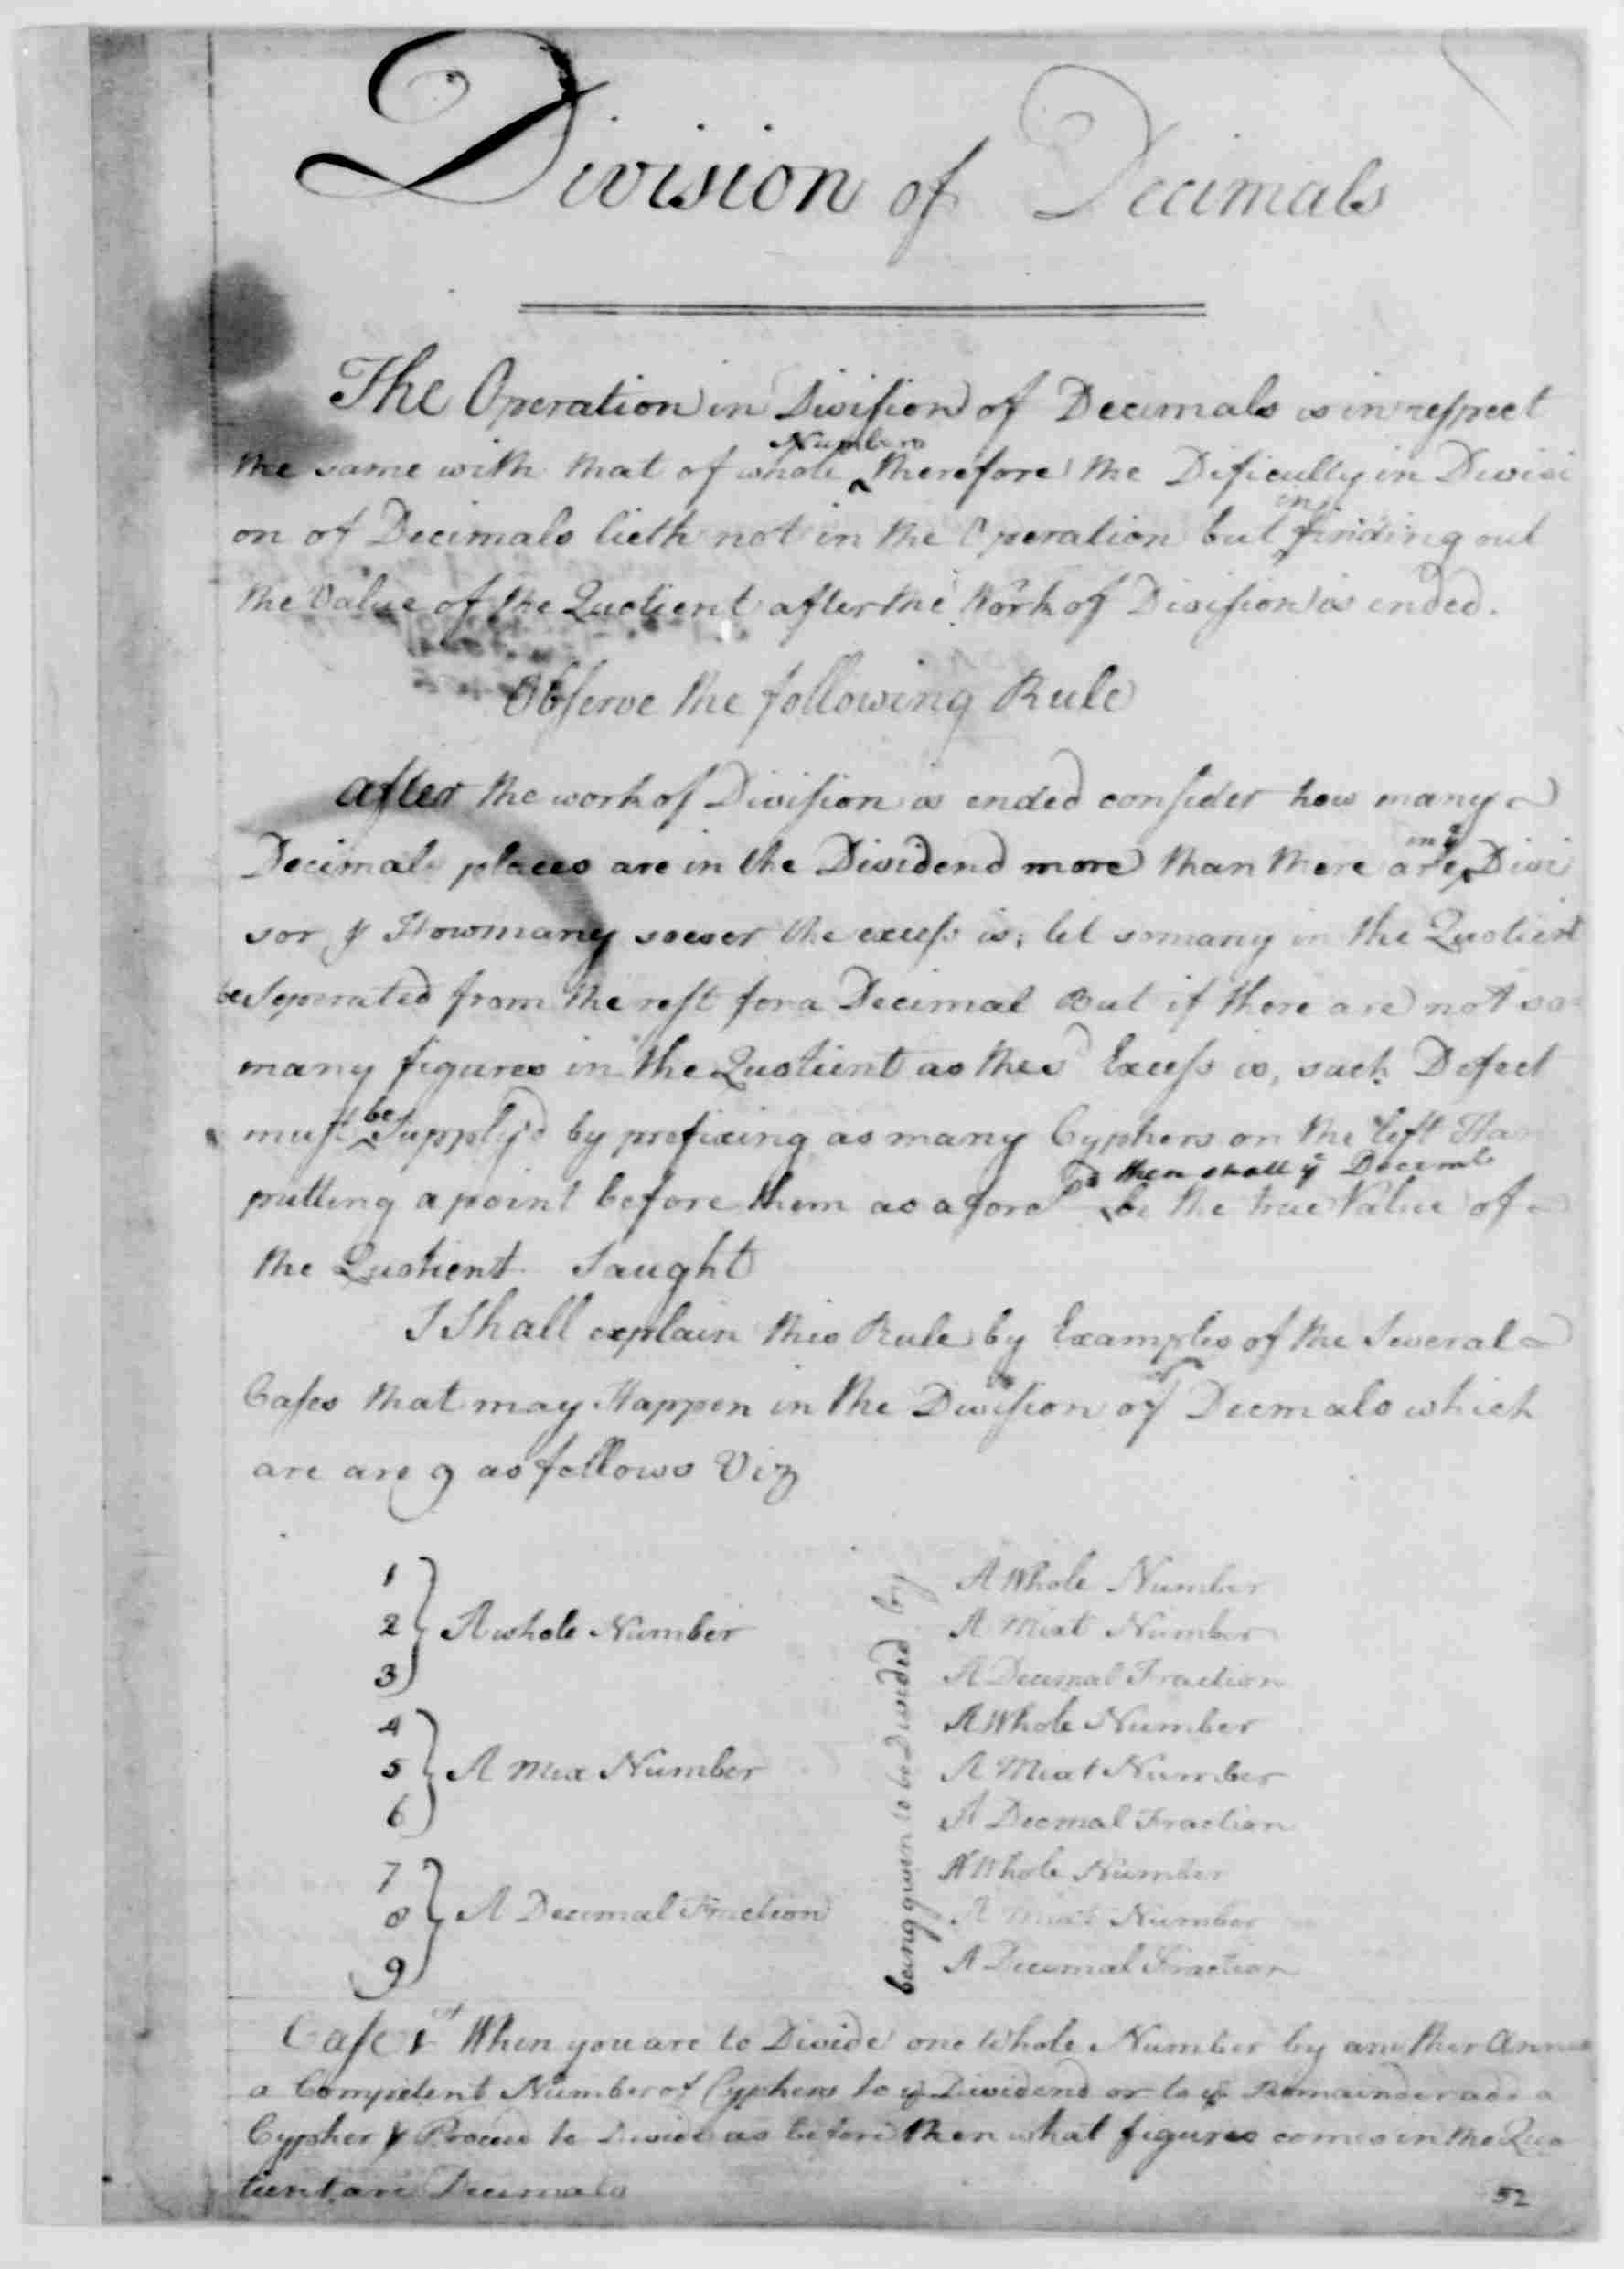 Division of Decimals
The Operation in Division of Decimals is in respect
the same with that of whole Numbers therefore the Dificulty in Divisi
on of Decimals lieth not in the Operation but in finding out
the Value of the Quotient after the Work of Division is ended.
Observe the following Rule
after the work of Division is ended consider how many
Decimal places are in the Dividend more than there are in ye Divi
sor & Howmany soever the excess is; let somany in the Quotient
be Seperated from the rest for a Decimal But if there are not so
many figures in the Quotient as the Excess is, such Defect
must be Supply'd by prefixing as many Cyphers on the left Han
putting a point before them as afores'd then shall ye Decimal be the true Value of
the Quotient Saught
I Shall explain this Rule by Examples of the Several
Cases that may Happen in the Division of Decmals which
are are 9 as follows Viz
1 A Whole Number
2 A whole Number A Mixt Number
3 A Decimal Fraction
4 A Whole Number
5 A Mix Number A Mixt Number
6 A Decmal Fraction
7 A Whole Number
8 A Decimal Fraction A Mixt Number
9 A Decimal Fraction
being given to be Divided by
Case 1st When you are to Divide one Whole Number by another Annex
a Competent Number of Cyphers to ye Dividend or to ye Remainder add a
Cypher & Proceed to Divide as before then what figures comes in the Quo
tient are Decimals
52